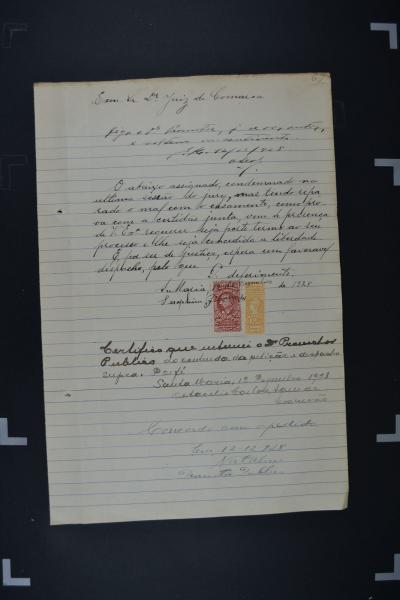 Exm. Sr. Dr. Juiz de Comarca
Diga o Dr. Promotor,
1928
O abaixo assignado, condemnado na
ultima sessão do jury, mas tendo repa
rado o mal com o casamento, como pro-
va com a certidão junta, vem á presença
de V. Exª requerer seja posto termo ao seu
processo e lhe seja concedida a liberdade.
E por ser de justiça, espera um favoravel
despacho, pelo que
P. deferimento.
Sta Maria, de 1928
Certifico que intimei o Dr Promotor
Publico do conteudo da petição e despacho
supra. Dou fé
Santa Maria, 12 Dezembro 1928
Escrivão
Concordo com o pedido
12-12-928
Promotor Publico